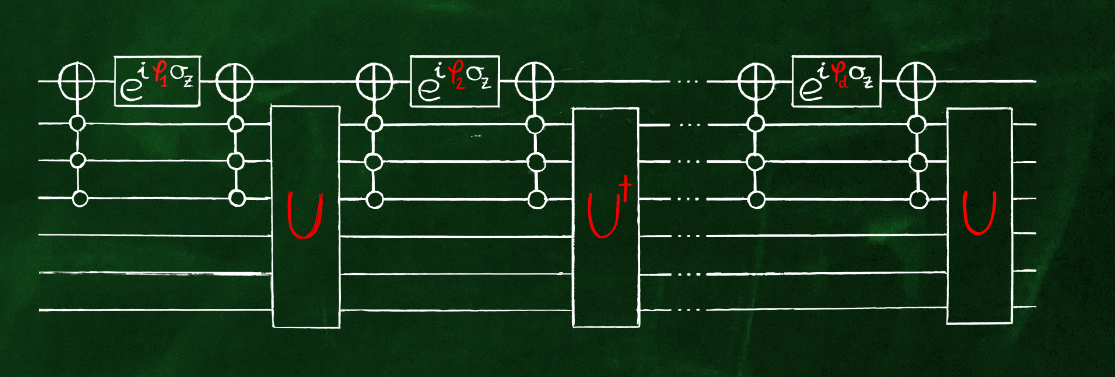 e^{iφ₁σ_z} e^{iφ₂σ_z} ... e^{iφ_dσ_z}
U U† U